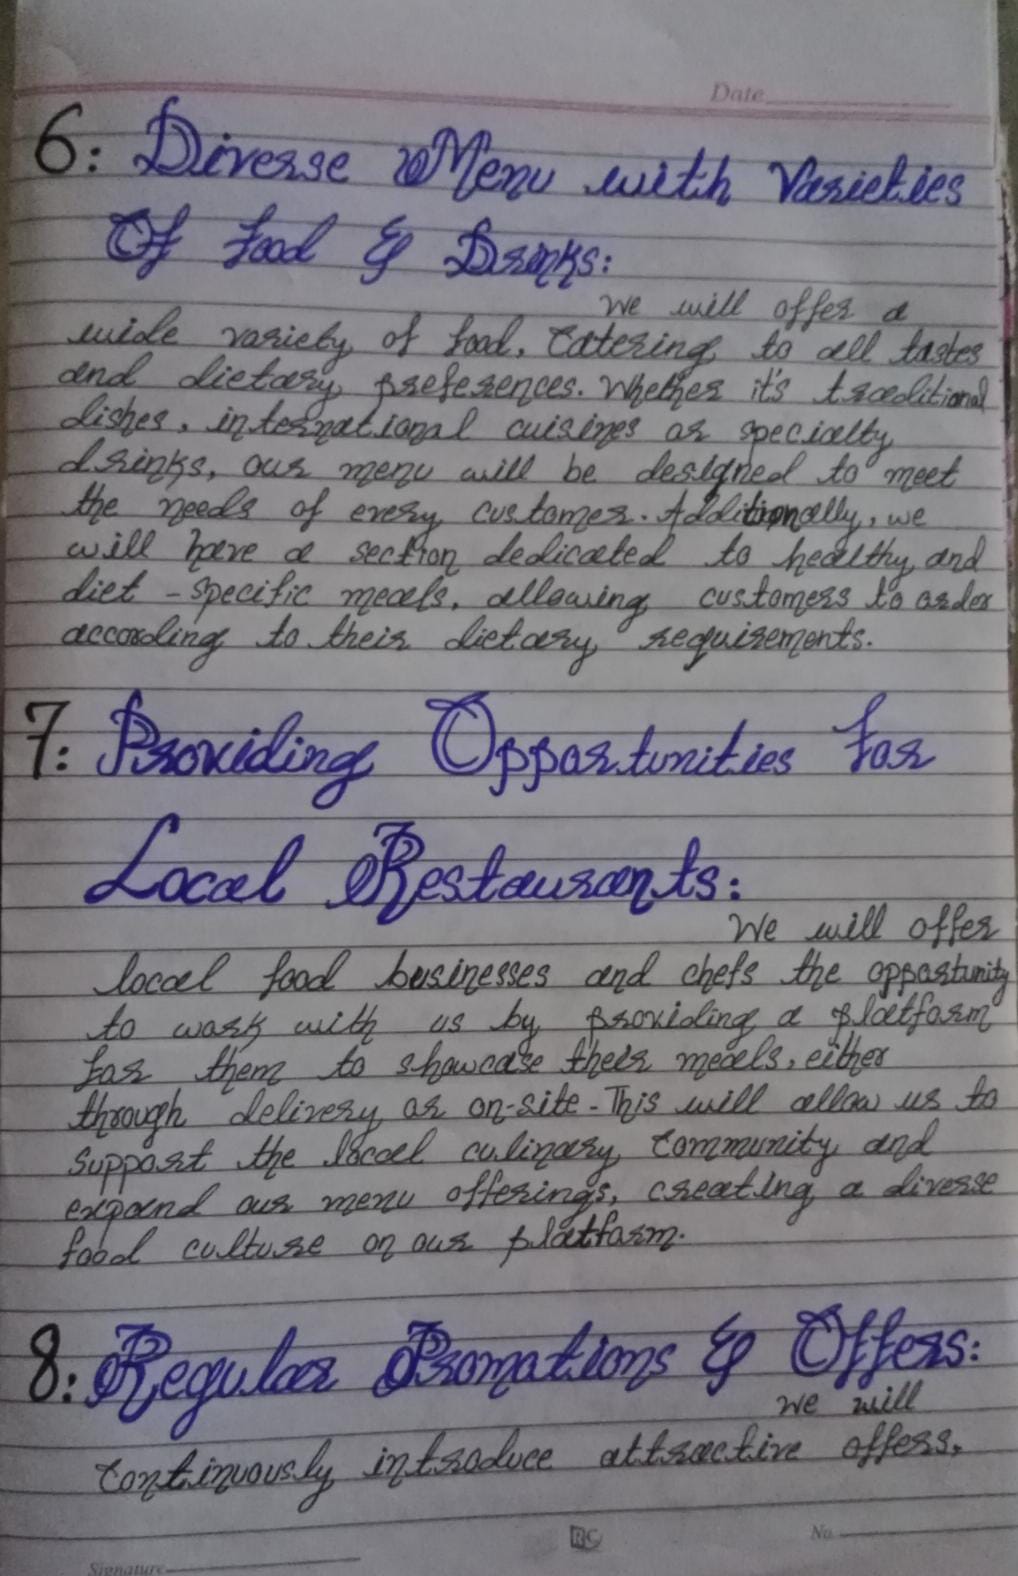 Date
6: Diverse Menu with Varieties
Of Food & Drinks:
We will offer a
wide variety of food, catering to all tastes
and dietary preferences. Whether it's traditional
dishes, international cuisines or specialty
drinks, our menu will be designed to meet
the needs of every customer. Additionally, we
will have a section dedicated to healthy and
diet - specific meals, allowing customers to order
according to their dietary requirements.
7: Providing Opportunities For
Local Restaurants:
We will offer
local food businesses and chefs the opportunity
to work with us by providing a platform
for them to showcase their meals, either
through delivery or on-site. This will allow us to
support the local culinary community and
expand our menu offerings, creating a diverse
food culture on our platform.
8: Regular Promotions & Offers:
We will
continuously introduce attractive offers,
RC
No.
Signature